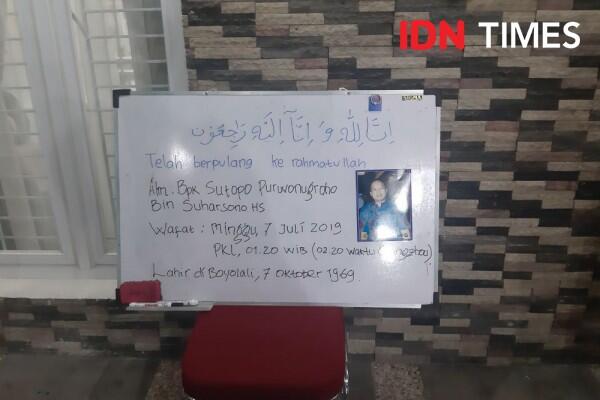 IDN TIMES
SIGMA
إنا لله وإنا إليه راجعون
Telah berpulang ke rahmatullah
Alm. Bpk Sutopo Purwonugroho
Bin Suharsono HS
Wafat : Minggu, 7 Juli 2019
PKL, 01.20 WIB (02.20 Waktu Guangzhou)
Lahir di Boyolali, 7 Oktober 1969.